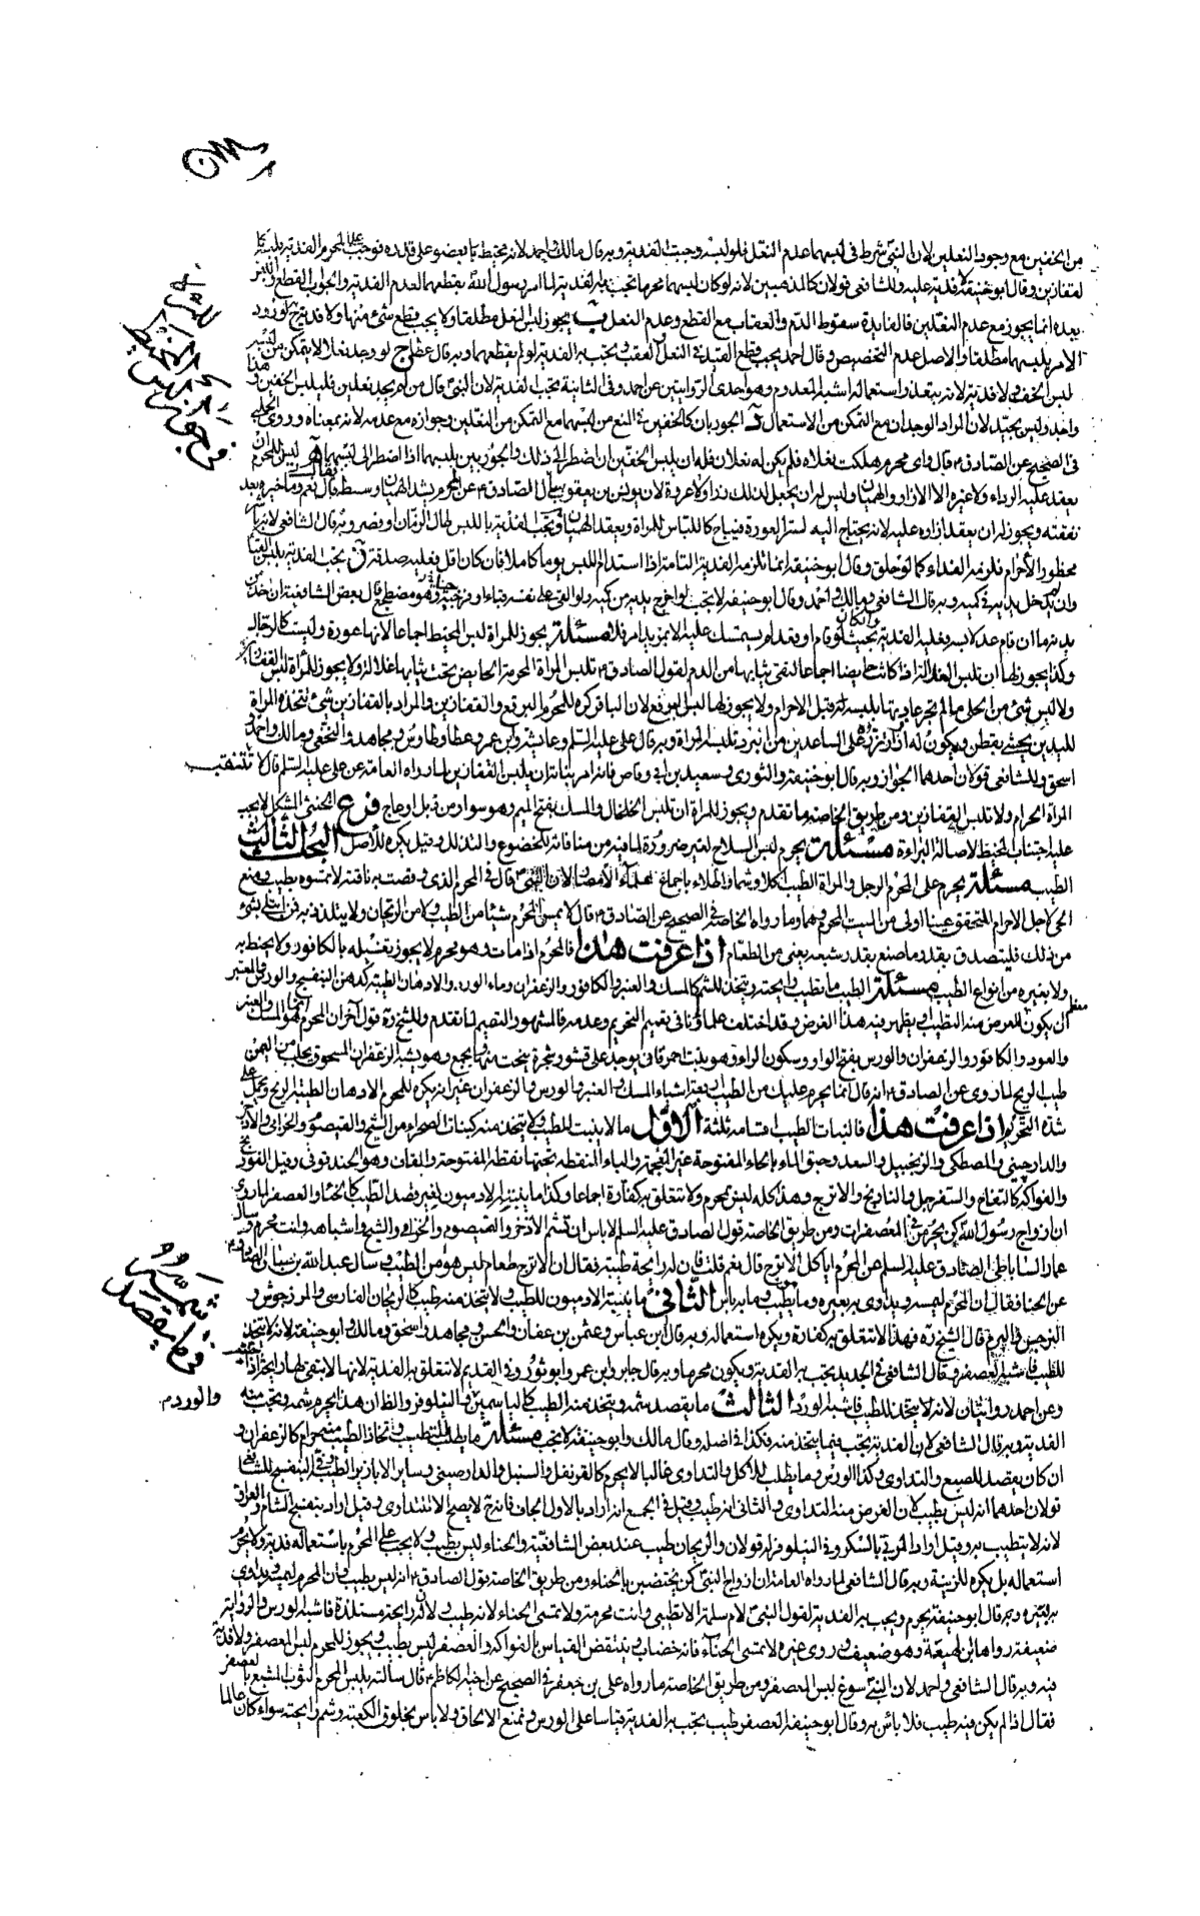 من الخفين مع وجود النعلين لان النبي شرط في لبسهما عدم النعل فلو لبسه وجبت الفدية وبه قال مالك واحمد لانه مخيط بالعضو على قدره فوجب على المحرم الفدية بلبسه كا
لقفازين وقال ابو حنيفة لا فدية عليه وللشافعي قولان كالمذهبين لانه لو كان لبسهما محرما تجب به الفدية لما امر رسول الله بقطعهما لعدم الفدية والجواب القطع واللبس
بعده انما يجوز مع عدم النعلين فالفايدة سقوط الدم والعقاب مع القطع وعدم النعل ب يجوز لبس النعل مطلقا ولا يجب قطع شئ منها ولا فدية لورود
الامر بلبسهما مطلقا والاصل عدم التخصيص وقال احمد يجب قطع القيد في النعل والعقب وتجب به الفدية لو لم يقطعهما وبه قال عطا ج لو وجد نعلا لا يتمكن من لبسه
لبس الخف ولا فدية لانه بتعذر استعماله اشبه المعدوم وهو احدى الروايتين عن احمد وفي الثانية تجب الفدية لان النبي قال من لم يجد نعلين فليلبس الخفين وهذا
واجد وليس بجيد لان المراد الوجدان مع التمكن من الاستعمال د الجوربان كالخفين في المنع من لبسهما مع التمكن من النعلين وجوازه مع عدمه لانه بمعناه وروى الحلبي
في الصحيح عن الصادق ع قال واي محرم هلكت نعلاه فلم يكن له نعلان فله ان يلبس الخفين ان اضطر الى ذلك والجوربين يلبسهما اذا اضطر الى لبسهما ه ليس للمحرم ان
يعقد عليه الرداء ولا غيره الا الازار والهميان وليس له ان يجعل لذلك زرا ولا عروة لان يونس بن يعقوب سأل الصادق ع عن المحرم يشد الهميان وسطه قال نعم وما خيره بعد
نفقته ويجوز له ان يعقد ازاره عليه لانه يحتاج اليه لستر العورة فيباح كاللباس للمراة ويعقد الهميان و تجب الفدية باللبس طال الزمان او قصر وبه قال الشافعي لانه باشر
محظور الاحرام فلزمه الفداء كما لو حلق وقال ابو حنيفة انما تلزمه الفدية التامة اذا استدام اللبس يوما كاملا فان كان اقل فعليه صدقة ز تجب الفدية بلبس القبا
وان لم يدخل يديه في كميه وبه قال الشافعي ومالك واحمد وقال ابو حنيفة لا تجب لو اخرج يديه من كميه ولو القى على نفسه قباء او فرجية وهو مضطجع قال بعض الشافعية ان اخذ من
بدنه ما ان قام عد لابسه فعليه الفدية وان كان بحيث لو قام او قعد لم يستمسك عليه الا بمزيد امر فلا مسئلة يجوز للمراة لبس المخيط اجماعا لانها عورة وليست كالرجال
وكذا يجوز لها ان تلبس الغلالة اذا كانت حايضا اجماعا لتقي ثيابها من الدم لقول الصادق ع تلبس المراة المحرمة الحايض تحت ثيابها غلالة ولا يجوز للمراة لبس القفازين
ولا لبس شئ من الحلى مالم تجر عادتها بلبسه قبل الاحرام ولا يجوز لها لبس البرقع لان الباقر كره للمحرمة البرقع والقفازين والمراد بالقفازين شئ تتخذه المراة
لليدين يحشى بقطن ويكون له ازرار تزره على الساعدين من البرد تلبسه المراة وبه قال علي عليه السلم وعايشه وابن عمر وعطا وطاوس ومجاهد والنخعي ومالك واحمد و
اسحق وللشافعي قولان احدهما الجواز وبه قال ابو حنيفة والثوري وسعيد بن ابي وقاص فانه امر بناته ان يلبس القفازين لما رواه العامة عن علي عليه السلم قال لا تتنقب
المراة الحرام ولا تلبس القفازين ومن طريق الخاصة ما تقدم ويجوز للمراة ان تلبس الخلخال والمسك بفتح الميم وهو سوار من ذبل او عاج فرع الخنثى المشكل لا يجب
عليه اجتناب المخيط لاصالة البراءة مسئلة يحرم لبس السلاح لغير ضرورة لما فيه من منافاته للخضوع والتذلل وقيل يكره للأصل البحث الثالث
الطيب مسئلة يحرم على المحرم الرجل والمراة الطيب اكلا وشما واطلاء باجماع علماء الامصار لان النبي ص قال في المحرم الذي وقصت به ناقته لا تمسوه بطيب ومنع
الحى لاجل الاحرام المتحقق عينا اولى من الميت المحرم وهما وما رواه الخاصة في الصحيح عن الصادق ع قال لا يمس المحرم شيئا من الطيب ولا من الريحان ولا يتلذذ به فمن ابتلي بشئ
من ذلك فليتصدق بقدر ما صنع بقدر شبعه يعني من الطعام اذا عرفت هذا فالمحرم اذا مات وهو محرم لا يجوز تغسيله بالكافور ولا يحنط به
ولا بغيره من انواع الطيب مسئلة الطيب ما تطيب رايحته ويتخذ للشم كالمسك والعنبر والكافور والزعفران وماء الورد والادهان الطيبة كدهن البنفسج والورس والمعتبر
ان يكون معظم الغرض منه التطيب او يظهر فيه هذا الغرض وقد اختلف علماؤنا في تعميم التحريم وعدمه فالمشهور التعميم لما تقدم وللشيخ ره قول آخر ان المحرم هو المسك والعنبر
والعود والكافور والزعفران والورس بفتح الواو وسكون الراء وهو نبت احمر قاني يوجد على قشور شجرة ينحت منها ويجمع وهو يشبه الزعفران المسحوق يجلب من اليمن
طيب الريح لما روي عن الصادق ع انه قال انما يحرم عليك من الطيب اربعة اشياء المسك والعنبر والورس والزعفران غير انه يكره للمحرم الادهان الطيبة الريح ويحمل على
شدة التحريم اذا عرفت هذا فالنبات الطيب اقسامه ثلثة الاول ما لا ينبت للطيب ولا يتخذ منه كنبات الصحراء من الشيح والقيصوم والخزامى والاذخر
والدارچيني والمصطكى والزنجبيل والسعد وحبق الماء بالحاء المفتوحة غير المعجمة والباء المنقطة تحتها نقطة المفتوحة والقاف وهو الحندقوقى وقيل الفوذنج
والفواكه كالتفاح والسفرجل والنارنج والاترج وهذا كله ليس بمحرم ولا تتعلق به كفارة اجماعا وكذا ما ينبته الادميون لغير قصد الطيب كالحناء والعصفر لما روي
ان ازواج رسول الله كن يحرمن في المعصفرات ومن طريق الخاصة قول الصادق عليه السلم لا باس ان تشم الاذخر والقيصوم والخزامى والشيح واشباهه وانت محرم وسال
عمار الساباطي الصادق عليه السلم عن المحرم ايأكل الاترج قال نعم قلت فان له رايحة طيبة فقال ان الاترج طعام ليس هو من الطيب وسال عبد الله بن سنان الصادق ع
عن الحنا فقال ان المحرم ليمسه ويداوى به بعيره وما هو بطيب وما به باس الثاني ما ينبته الادميون للطيب ولا يتخذ منه طيب كالريحان الفارسي والمرزجوش و
النرجس والبرم قال الشيخ ره فهذا لا تتعلق به كفارة ويكره استعماله وبه قال ابن عباس وعثمن بن عفان والحسن ومجاهد واسحق ومالك وابو حنيفة لانه لا يتخذ
للطيب فاشبه العصفر وقال الشافعي في الجديد يجب به الفدية ويكون محرما وبه قال جابر وابن عمر وابو ثور وفي القديم لا تتعلق به الفدية لانها لا تبقى لها رايحة اذا جفت
وعن احمد روايتان لانه لا يتخذ للطيب فاشبه الورد الثالث ما يقصد شمه ويتخذ منه الطيب كالياسمين والنيلوفر والظاهر ان هذا يحرم شمه وتجب منه
الفدية وبه قال الشافعي لان الفدية تجب فيما يتخذ منه فكذا في اصله وقال مالك وابو حنيفة لا تجب مسئلة ما يطلب للتطيب واتخاذ الطيب منه حرام كالزعفران و
ان كان يقصد للصبغ والتداوي وكذا الورس وما يطلب للاكل والتداوي غالبا لا يحرم كالقرنفل والسنبل والدارصيني وساير الابازير الطيبة وفي البنفسج للشافعي
قولان احدهما انه ليس بطيب لان الغرض منه التداوي والثاني انه طيب وقيل في الجمع انه اراد بالاول الجاف فانه ح لا يصلح الا للتداوي وقيل اراد بنفسج الشام والعراق
لانه لا يتطيب به وقيل اراد المربى بالسكر وفي النيلوفر له قولان والريحان طيب عند بعض الشافعية والحناء ليس بطيب ولا يجب على المحرم باستعماله فدية ولا يحرم
استعماله بل يكره للزينة وبه قال الشافعي لما رواه العامة ان ازواج النبي كن يختضبن بالحناء ومن طريق الخاصة قول الصادق ع انه ليس بطيب وان المحرم ليمسه ويداوي
به بعيره وقال ابو حنيفة يحرم ويجب به الفدية لقول النبي لام سلمة لا تطيبي وانت محرمة ولا تمسي الحناء لانه طيب ولانه رايحة مستلذة فاشبه الورس والرواية
ضعيفة رواها ابن لهيعة وهو ضعيف وروي غيره لا تمسي الحناء فانه خضاب وينتقض القياس بالفواكه والعصفر ليس بطيب ويجوز للمحرم لبس المعصفر ولا فدية
فيه وبه قال الشافعي واحمد لان النبي سوغ لبس المعصفر ومن طريق الخاصة ما رواه علي بن جعفر في الصحيح عن اخيه الكاظم ع قال سالته يلبس المحرم الثوب المشبع بالعصفر
فقال اذا لم يكن فيه طيب فلا باس به وقال ابو حنيفة العصفر طيب تجب به الفدية قياسا على الورس ونمنع الالحاق ولا باس بخلوق الكعبة وشم رايحته سواء كان عالما
والورد م